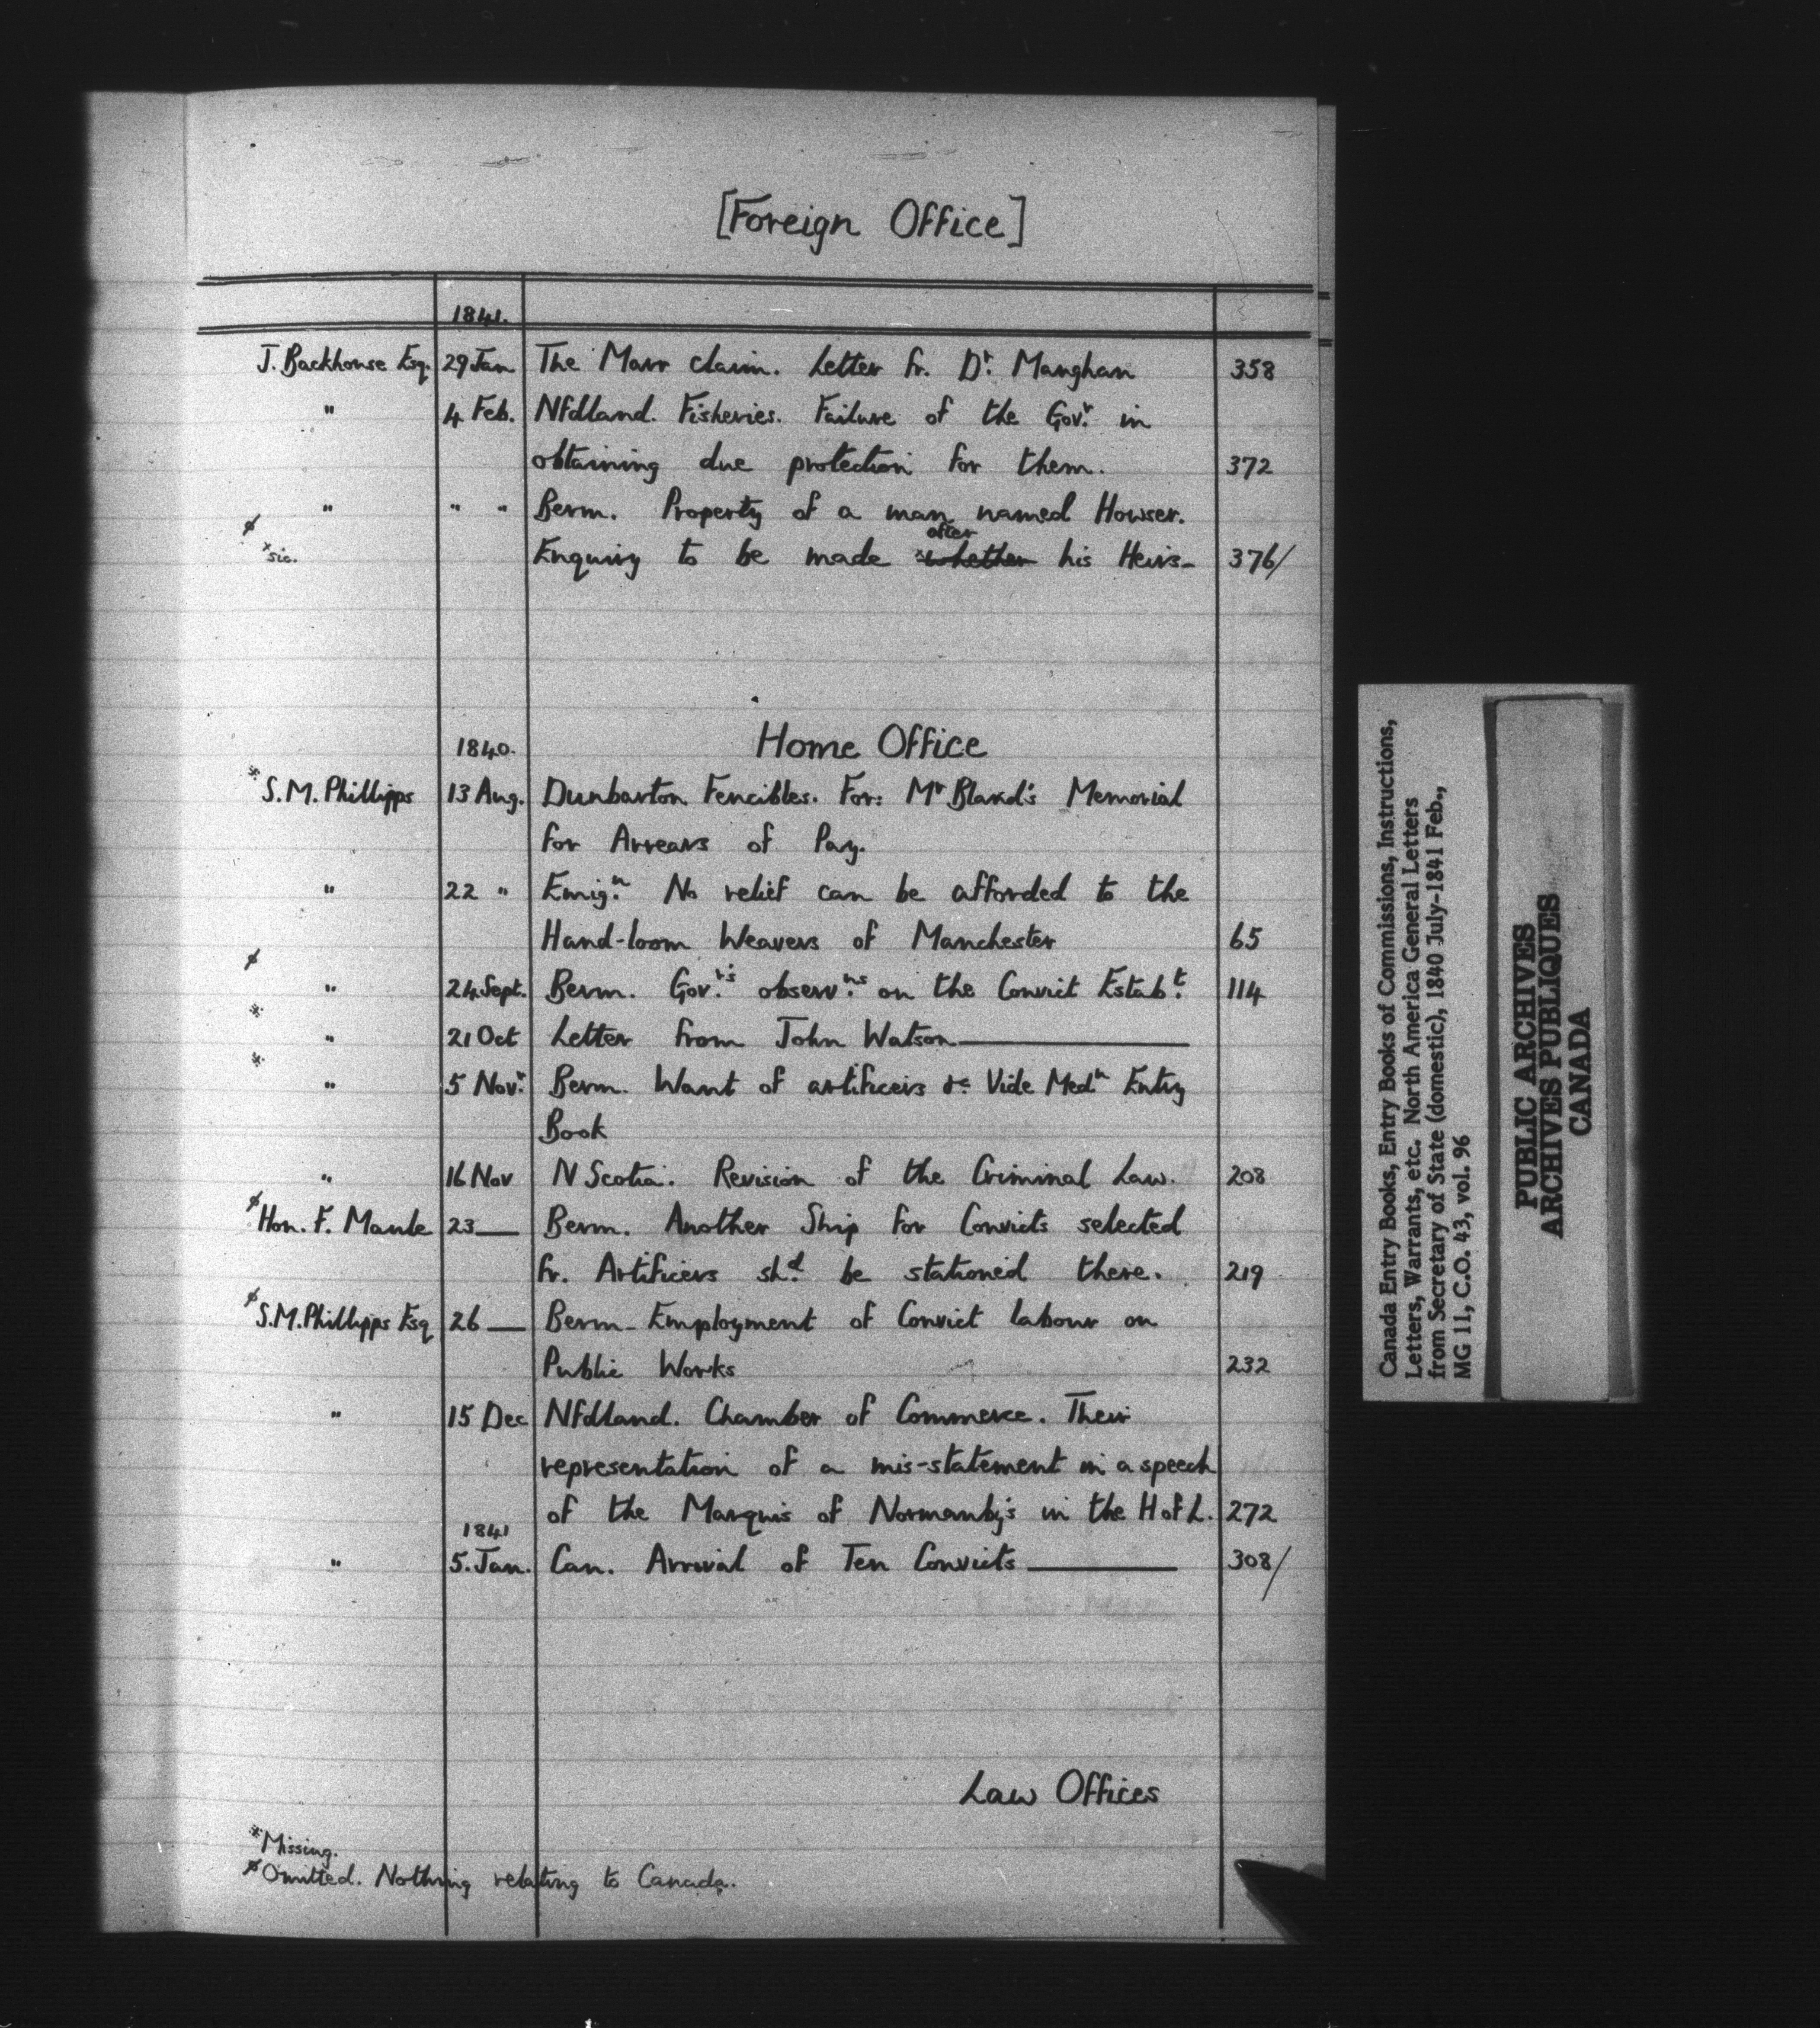 [Foreign Office]
1841.
J. Backhouse Esq. 29 Jan The Marr claim. Letter fr. Dr. Manghan 358
" 4 Feb. Nfdland. Fisheries. Failure of the Govr. in
obtaining due protection for them. 372
" " " Berm. Property of a man named Howser.
ø
after
xsic. Enquiry to be made xwhether his Heirs- 376/
1840. Home Office
* S.M. Phillipps 13 Aug. Dunbarton Fencibles. For: Mr Bland's Memorial
for Arrears of Pay.
" 22 " Emign. No relief can be afforded to the
Hand-loom Weavers of Manchester 65
ø " 24 Sept. Berm. Govr's observns. on the Convict Estabt. 114
* " 21 Oct Letter from John Watson
* " 5 Novr. Berm. Want of artificers &c. Vide Medn Entry
Book
" 16 Nov N Scotia. Revision of the Criminal Law. 208
ø Hon. F. Maule 23 — Berm. Another Ship for Convicts selected
fr. Artificers shd. be stationed there. 219
ø S.M. Phillipps Esq 26 — Berm- Employment of Convict labour on
Public Works 232
" 15 Dec Nfdland. Chamber of Commerce. Their
representation of a mis-statement in a speech
of the Marquis of Normanby's in the H of L. 272
1841
" 5. Jan. Can. Arrival of Ten Convicts 308/
Law Offices
* Missing.
ø Omitted. Nothing relating to Canada.
Canada Entry Books, Entry Books of Commissions, Instructions,
Letters, Warrants, etc. North America General Letters
from Secretary of State (domestic), 1840 July-1841 Feb.,
MG 11, C.O. 43, vol. 96
PUBLIC ARCHIVES
ARCHIVES PUBLIQUES
CANADA